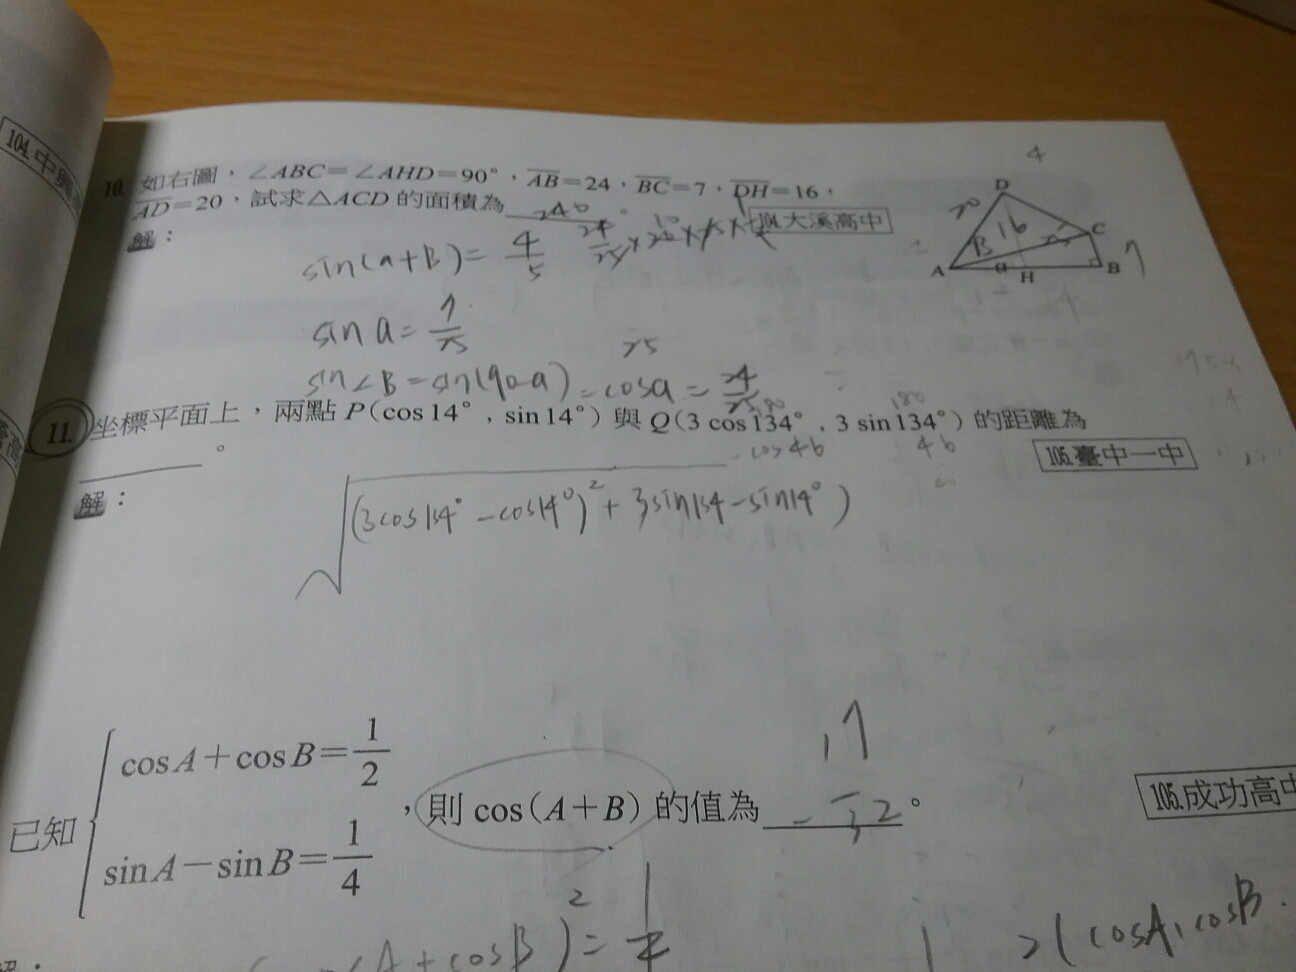 104.中興
10. 如右圖，∠ABC=∠AHD=90°，AB=24，BC=7，DH=16，
AD=20，試求△ACD 的面積為 240 。
104.大溪高中
解：
sin(a+B)= 4/5
sin a= 7/25
25
sin∠B=sin(90-a)=cosa= 24/25
4
D
20
16
C
B
7
A
a
H
B
11. 坐標平面上，兩點 P(cos14°, sin14°) 與 Q(3 cos134°, 3 sin134°) 的距離為
180
cos46
46
。
105.臺中一中
解：
√(3cos134°-cos14°)²+3sin134-sin14°)
已知 { cosA+cosB=1/2
sinA-sinB=1/4
，則 cos(A+B) 的值為 。
105.成功高中
A+cosB)²=
2(cosA,cosB
解：